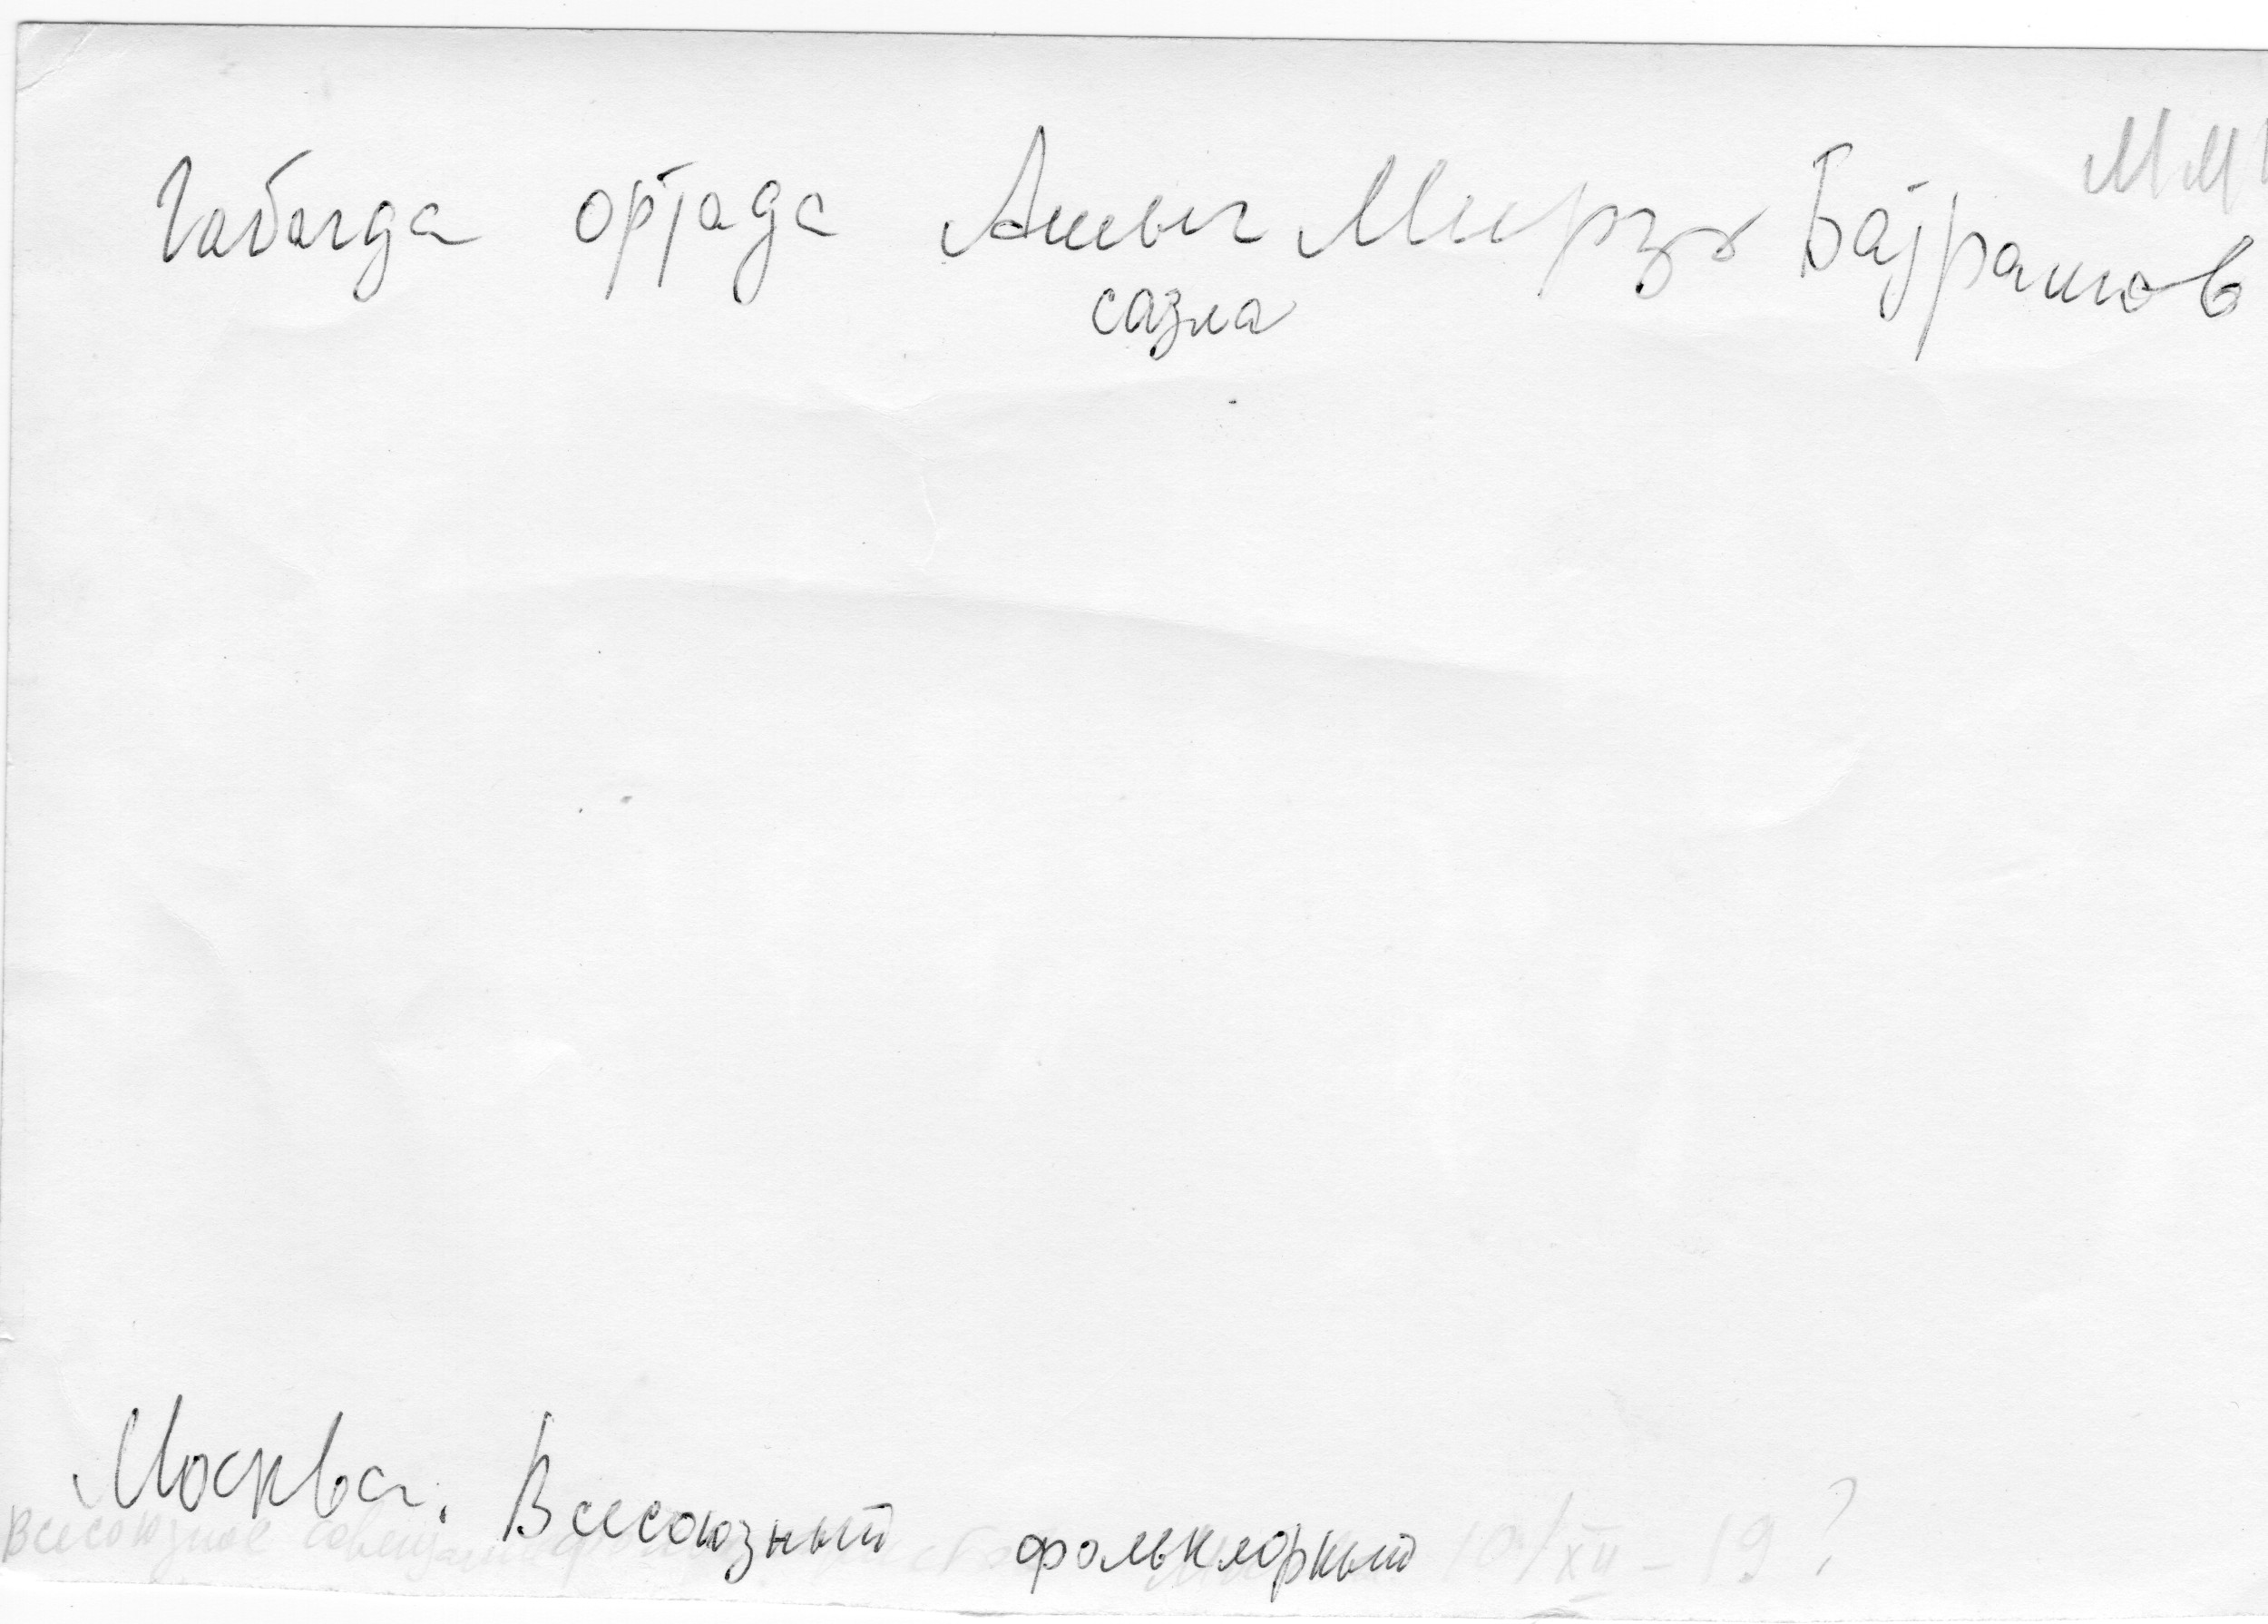 ММ
Габагда ортада Ашыг Мирзә Бајрамов
сазла
Москва. Всесоюзный фольклорный
Всесоюзное совещание 10/XII - 19 ?